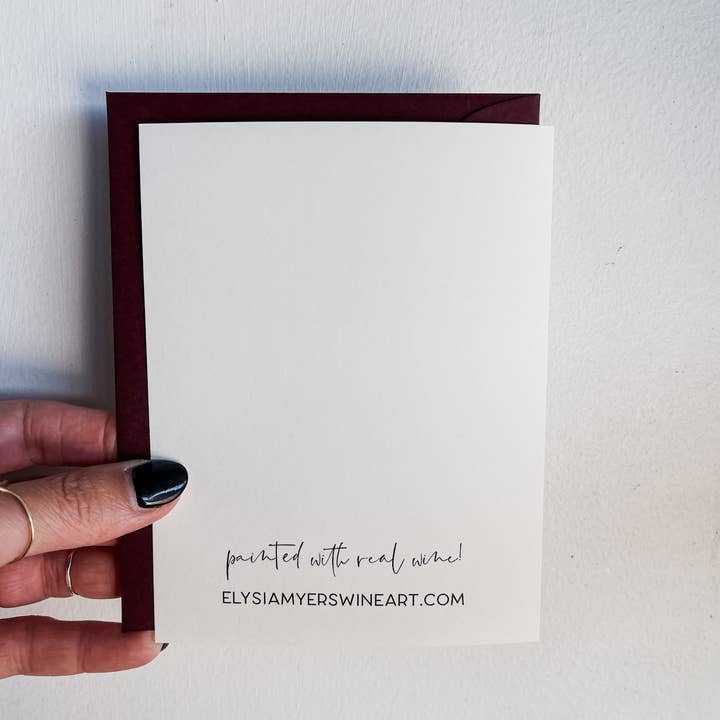 painted with real wine!
ELYSIAMYERSWINEART.COM